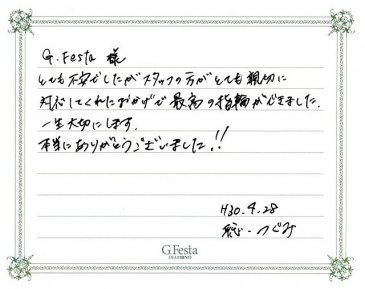 G.Festa 様
とても不安でしたがスタッフの方がとても親切に
対応してくれたおかげで最高の指輪ができました.
一生大切にします.
本当にありがとうございました!!
H30.4.28
つぐみ
G.Festa
DIAMOND